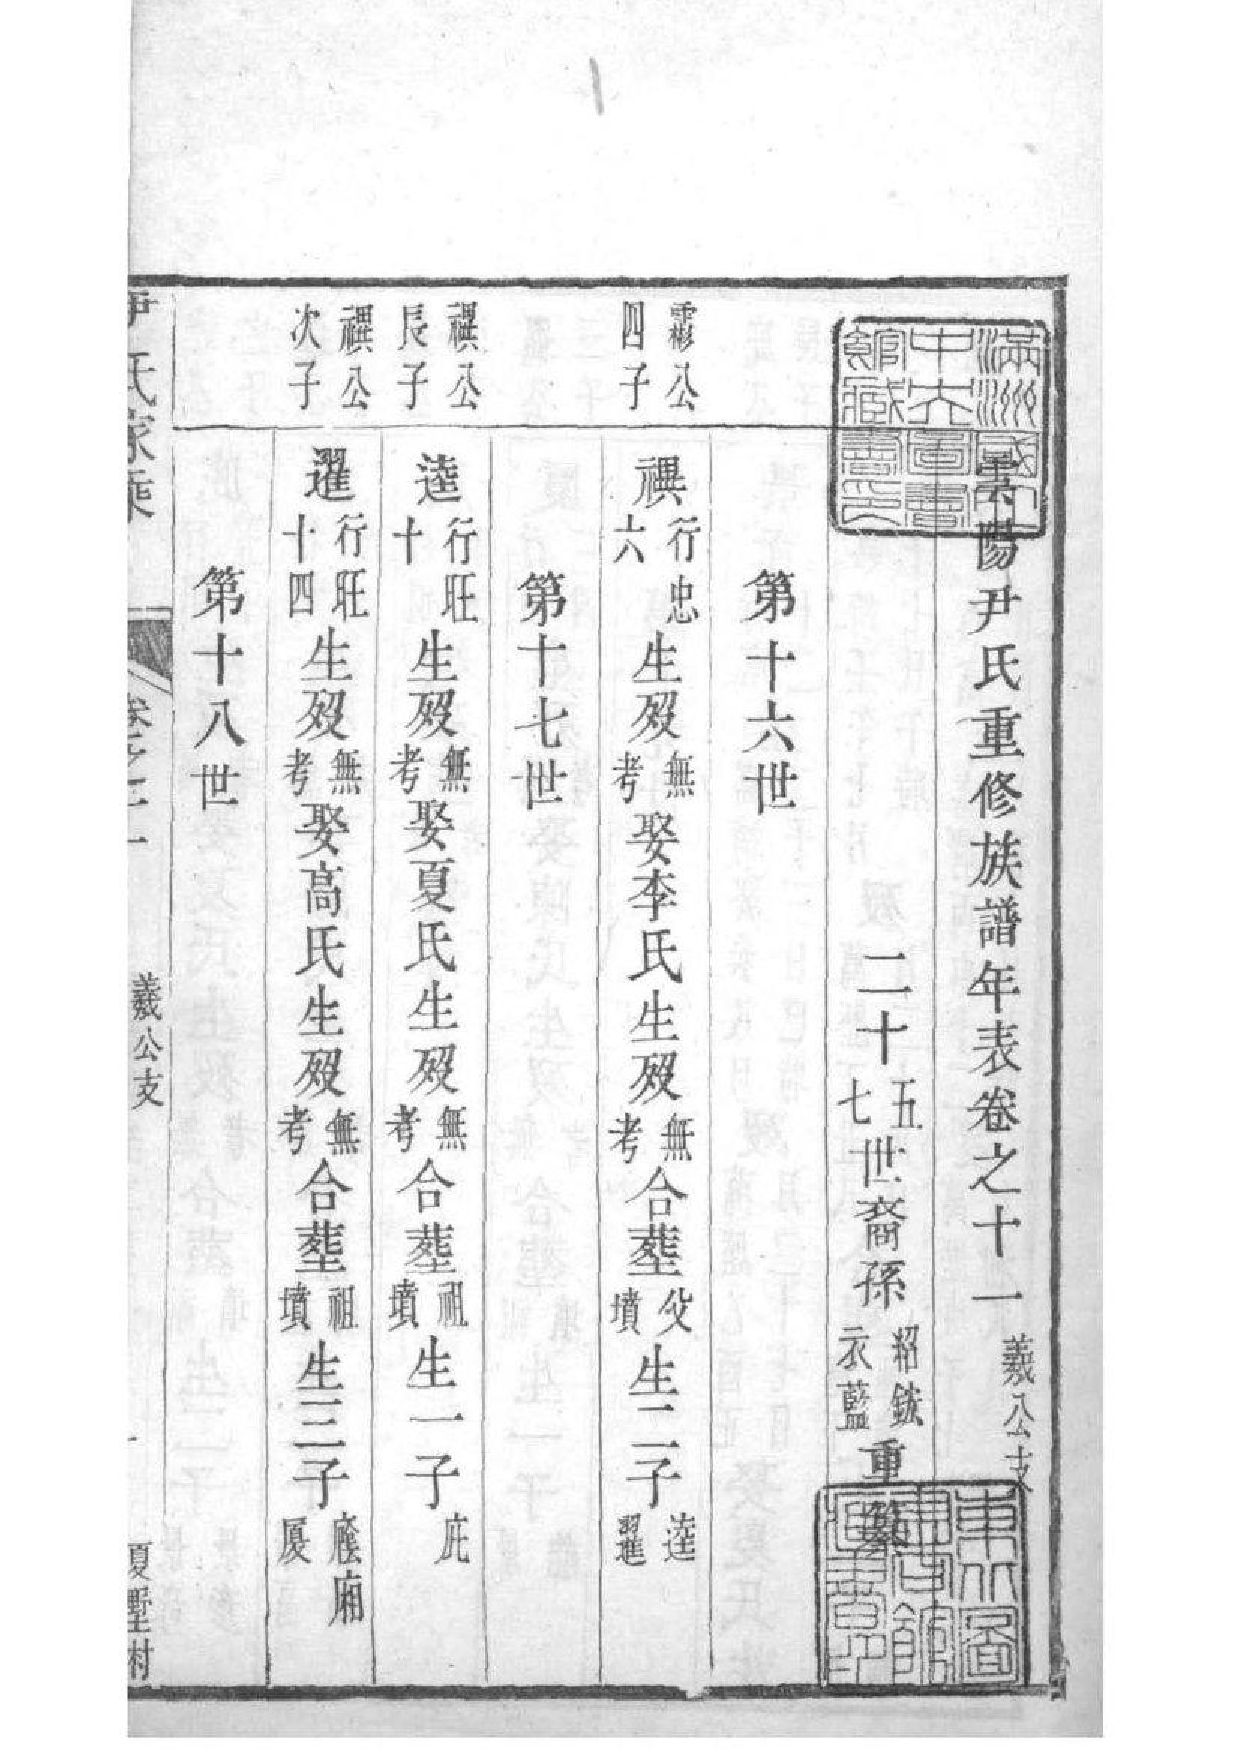 雲陽尹氏重修族譜年表卷之十一 羲公支
二十五七世裔孫 紹鉉衣藍 重纂
第十六世
霦公四子
禩 行忠六 生歿 無考 娶李氏生歿 無考 合葬 父墳 生二子 逵 選
第十七世
禩公長子
逵 行旺十 生歿 無考 娶夏氏生歿 無考 合葬 祖墳 生一子 庛
禩公次子
選 行旺十四 生歿 無考 娶高氏生歿 無考 合葬 祖墳 生三子 廕 廂 厦
第十八世
尹氏家乘 卷之十一 羲公支 一 夏墅村
滿洲國中央圖書館藏書之印
東北圖書館藏書印